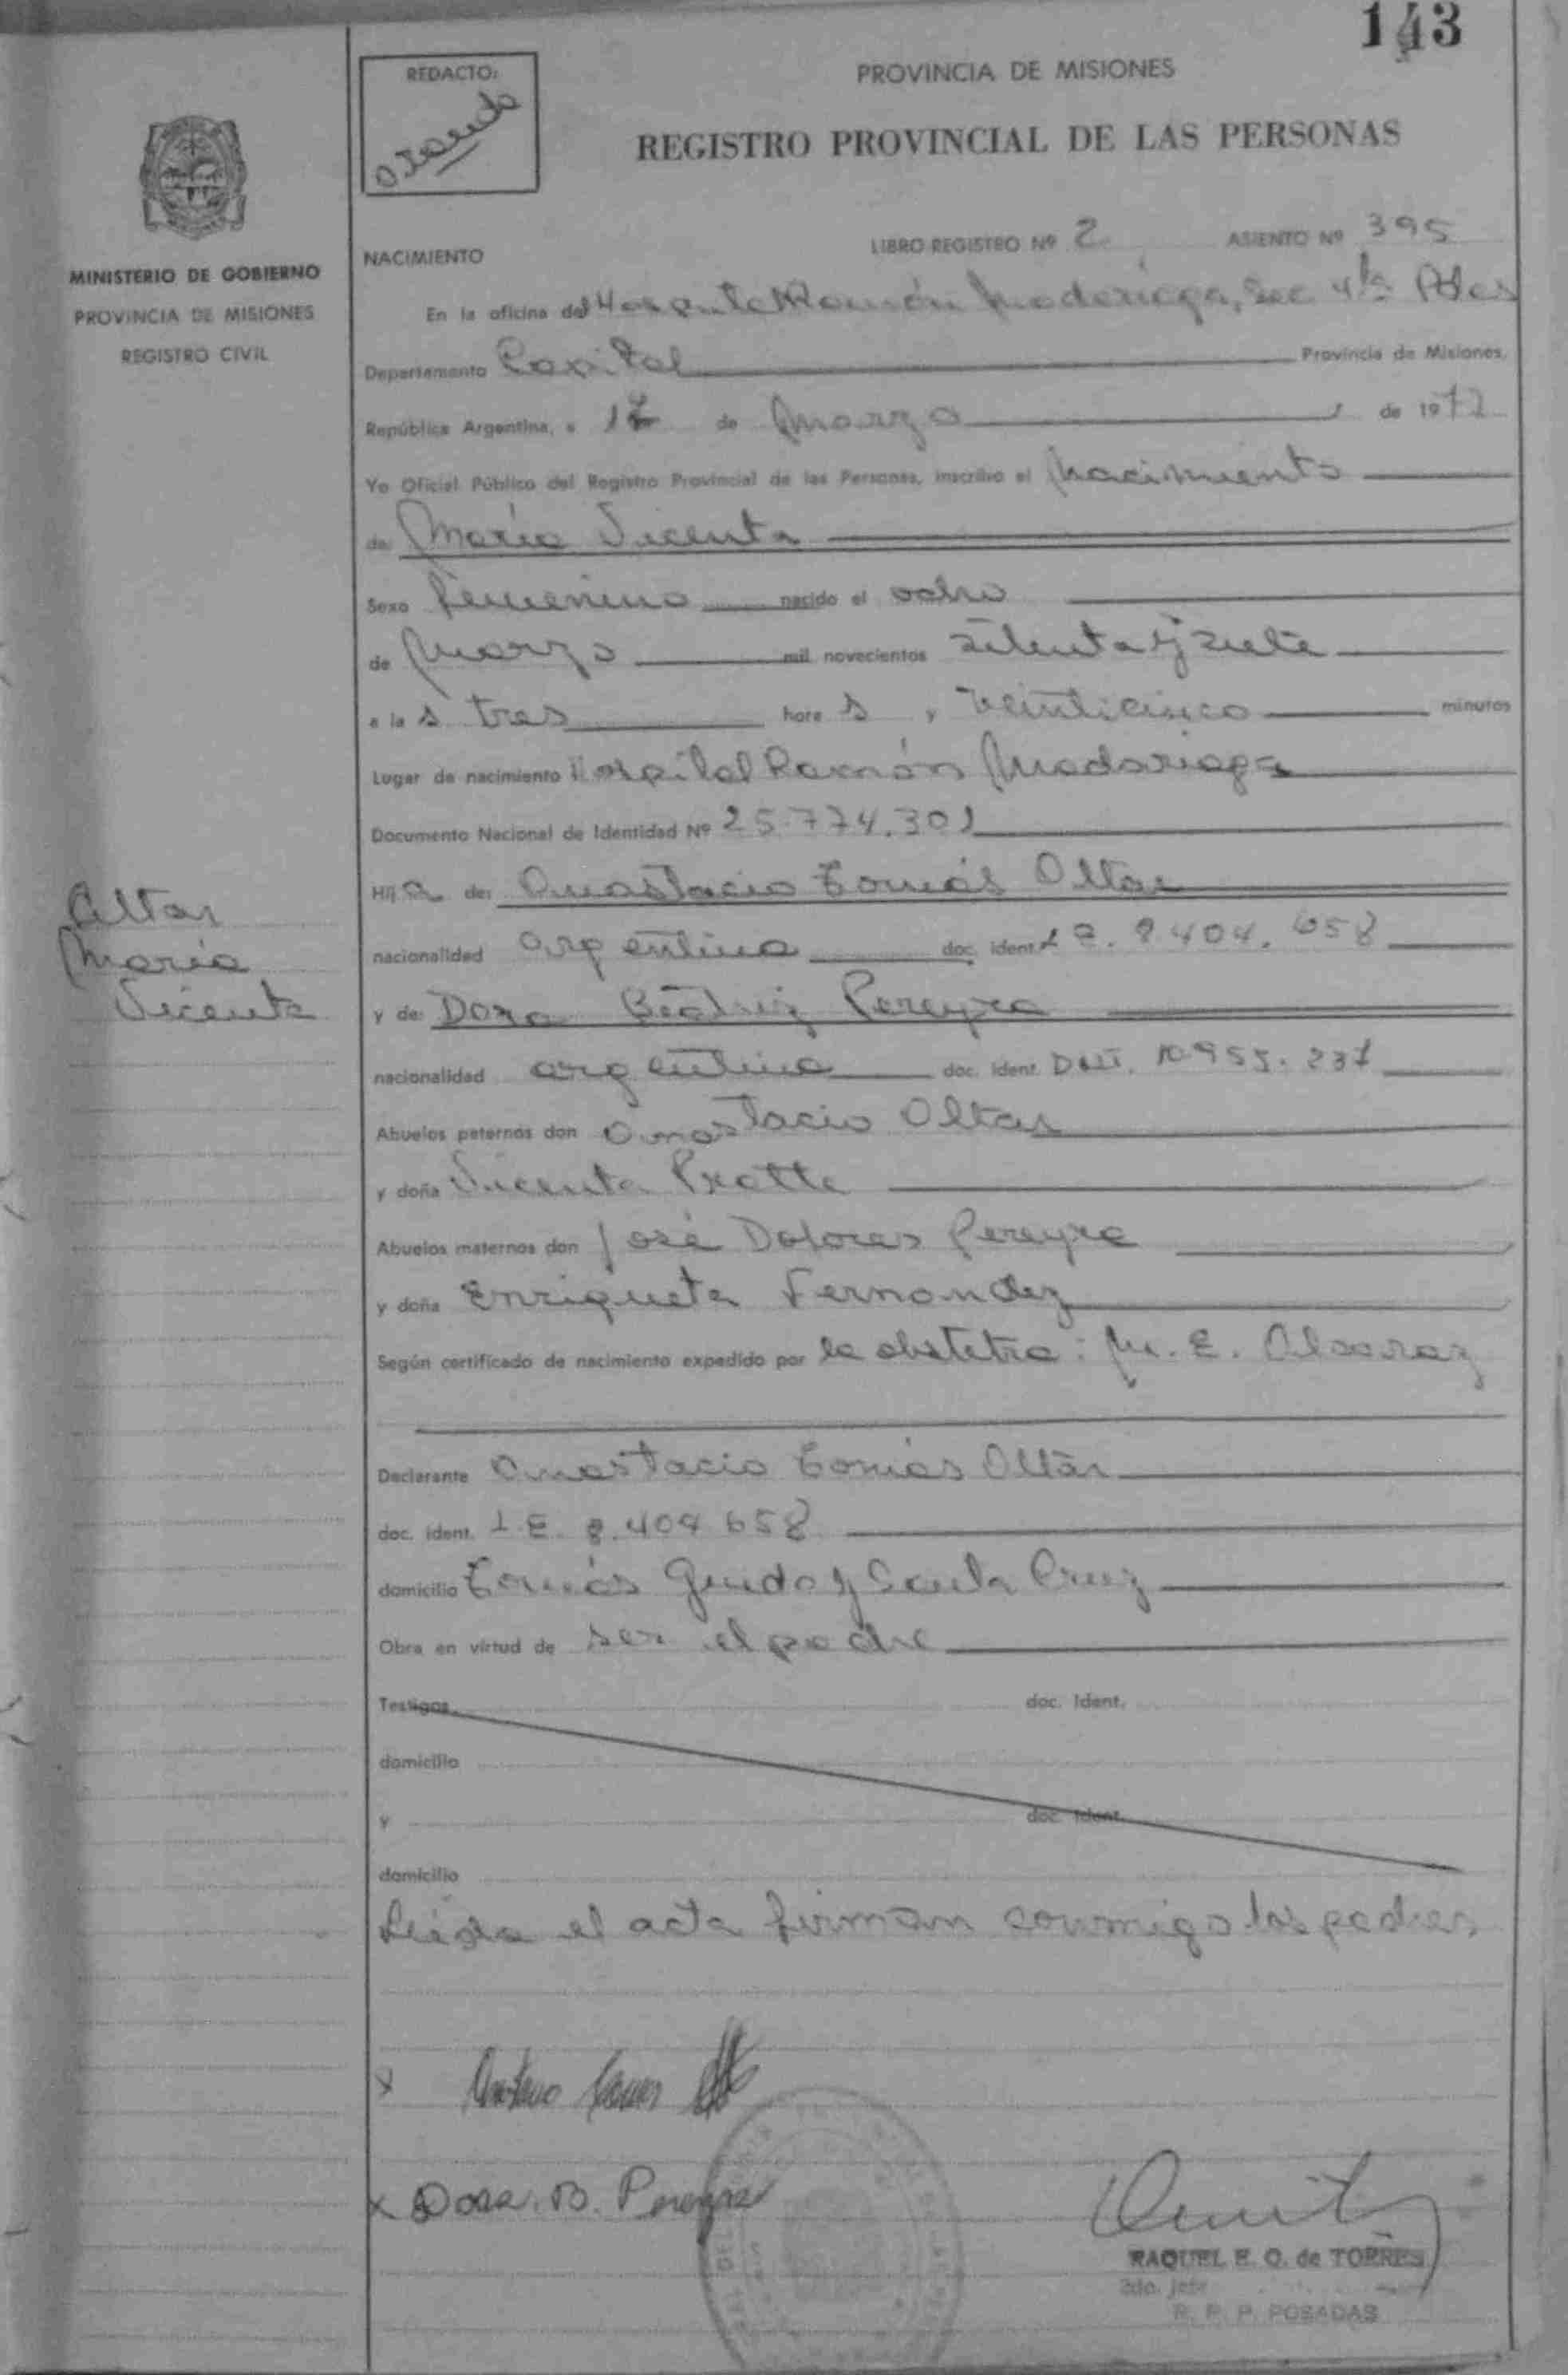 143
REDACTO:
PROVINCIA DE MISIONES
REGISTRO PROVINCIAL DE LAS PERSONAS
MINISTERIO DE GOBIERNO
PROVINCIA DE MISIONES
REGISTRO CIVIL
NACIMIENTO LIBRO REGISTRO Nº 2 ASIENTO Nº 395
En la oficina del Ramón Madariaga, Sec 4ta Pdas
Departamento Capital Provincia de Misiones,
República Argentina, a de Marzo de 1977
Yo Oficial Público del Registro Provincial de las Personas, inscribo el Nacimiento
de María Vicenta
Sexo femenino nacido el ocho
de Marzo mil novecientos setenta y siete
a las tres horas y veinticinco minutos
Lugar de nacimiento Hospital Ramón Madariaga
Documento Nacional de Identidad Nº 25.774.301
Hija de: Anastacio Tomás Altar
nacionalidad argentina doc. ident. L E. 8.404.658
y de Dora Beatriz Pereyra
nacionalidad argentina doc. ident. DNI. 10.955.237
Abuelos paternos don Anastacio Altar
y doña Vicenta Pratte
Abuelos maternos don José Dolores Pereyra
y doña Enriqueta Fernandez
Según certificado de nacimiento expedido por la obstetra: M. E. Alcaraz
Declarante Anastacio Tomás Altar
doc. ident. L.E. 8.404.658
domicilio Tomás Guido y Santa Cruz
Obra en virtud de ser el padre
Testigos doc. Ident.
domicilio
y doc. Ident.
domicilio
Leída el acta firman conmigo los padres.
Altar
María
Vicenta
x
x Dora. B. Pereyra
RAQUEL E. O. de TORRES
2do. Jefe
R. P. P. POSADAS